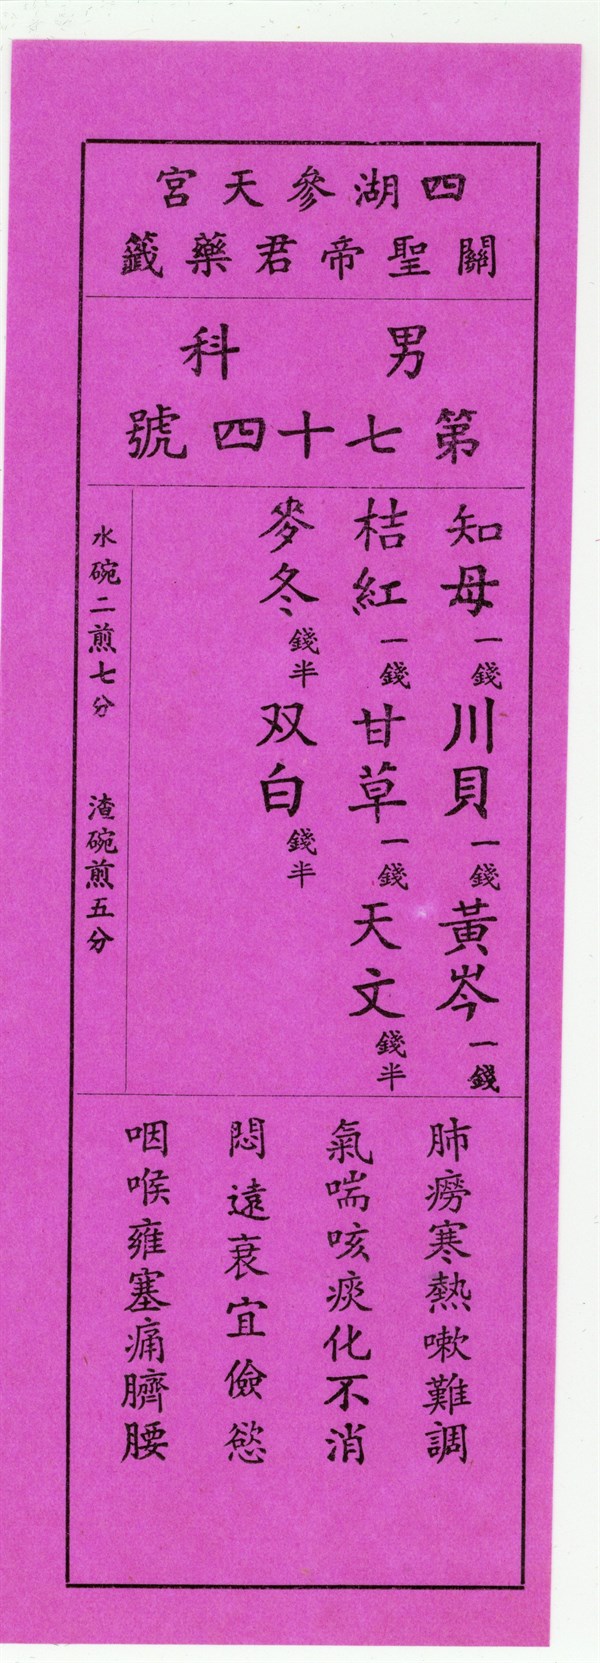 四湖參天宮
關聖帝君藥籤
男科
第七十四號
知母一錢川貝一錢黃岑一錢
桔紅一錢甘草一錢天文錢半
麥冬錢半双白錢半
水碗二煎七分 渣碗煎五分
肺癆寒熱嗽難調
氣喘咳痰化不消
悶遠衰宜儉慾
咽喉雍塞痛臍腰